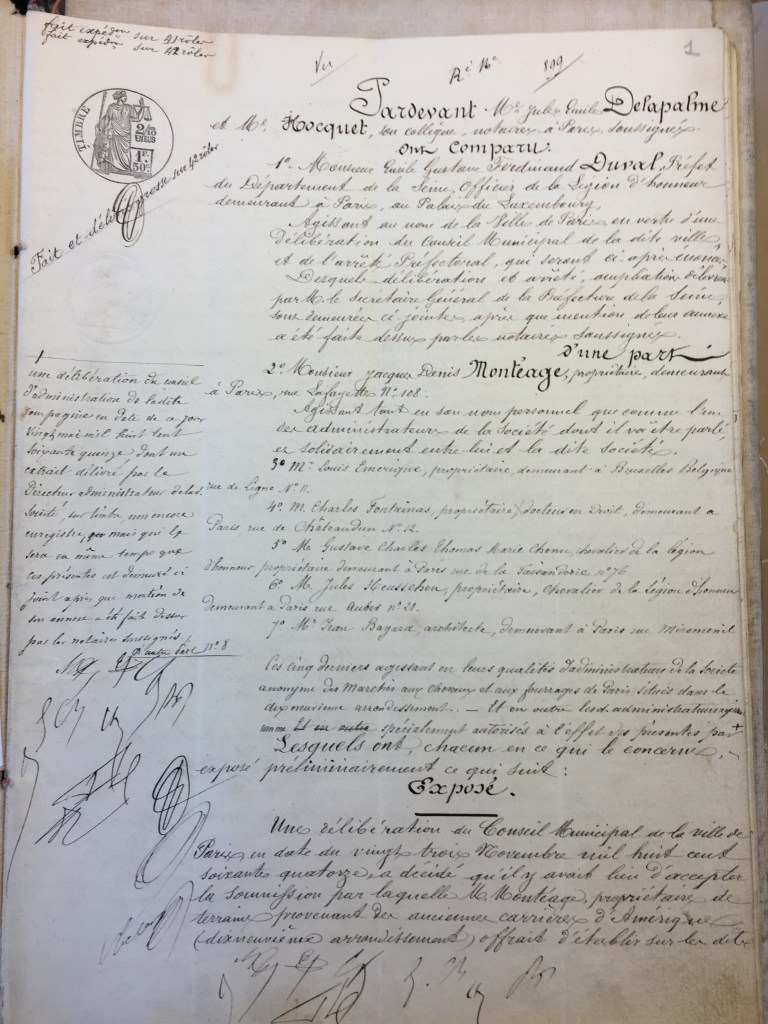 fait expédon sur 41 rôles
fait expédon sur 42 rôles
1
Ré No 899
TIMBRE
2/10 EN SUS
1F. 50c
Fait et délivré grosse sur 42 rôles
Pardevant Me Jules Emile Delapalme
et Me Hocquet, son collègue, notaires à Paris soussignés.
ont comparu.
1o Monsieur Emile Gustave Ferdinand Duval, Préfet
du Département de la Seine, Officier de la Légion d'honneur
demeurant à Paris, au Palais du Luxembourg,
Agissant au nom de la Ville de Paris, en vertu d'une
délibération du Conseil Municipal de la dite ville,
et de l'arrêté Préfectoral, qui seront ci après énoncés
Desquels délibération et arrêté, ampliations délivrées
par M. le Secrétaire Général de la Préfecture de la Seine,
sont demeurées ci-jointes, après que mention de leur annexe
a été faite dessus par les notaires soussignés.
d'une part
2o Monsieur Jacques Denis Montéage, propriétaire, demeurant
à Paris, rue Lafayette No 108.
Agissant tant en son nom personnel que comme l'un
des administrateurs de la Société dont il va être parlé,
et solidairement entre lui et la dite Société.
3o Mr Louis Emerique, propriétaire, demeurant à Bruxelles Belgique
rue de Ligne No 11.
4o M. Charles Fontainas, propriétaire, docteur en Droit, demeurant à
Paris, rue de Châteaudun No 12.
5o Mr Gustave Charles Thomas Marie Chenu, chevalier de la légion
d'honneur propriétaire demeurant à Paris rue de la Faisanderie no 76
6o M. Jules Heusschen, propriétaire, chevalier de la Légion d'honneur
demeurant à Paris rue Auber no 21.
7o Mr Jean Bayard, architecte, demeurant à Paris rue Miromenil
no 8
Ces cinq derniers agissant en leurs qualités d'administrateurs de la Société
anonyme des Marchés aux chevaux et aux fourrages de Paris situés dans le
dix neuvième arrondissement. — Et en outre les d. administrateurs
comme Et en outre spécialement autorisés à l'effet des présentes par +
Lesquels ont, chacun en ce qui le concerne,
exposé préliminairement ce qui suit :
Exposé.
Une délibération du Conseil Municipal de la ville de
Paris, en date du vingt trois Novembre mil huit cent
soixante quatorze, a décidé qu'il y avait lieu d'accepter
la soumission par laquelle M. Montéage, propriétaire de
terrains provenant des anciennes carrières d'Amérique
(dix neuvième arrondissement) offrait d'établir sur les dits
une délibération du conseil
d'administration de la dite
compagnie en date de ce jour
vingt mai mil huit cent
soixante quinze dont un
extrait délivré par le
Directeur administrateur de la
Société, sur timbre non encore
enregistré, mais qui le
sera en même temps que
ces présentes est demeuré ci
joint après que mention de
son annexe a été faite dessus
par les notaires soussignés.
D'autre part